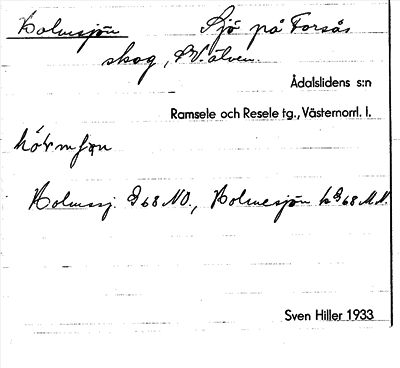 Holmsjön Sjö på Forsås
skog, SV. älven.
Ådalslidens s:n
Ramsele och Resele tg., Västernorrl. l.
Holmsj. G68 NO., Holmesjön k G68 
Sven Hiller 1933